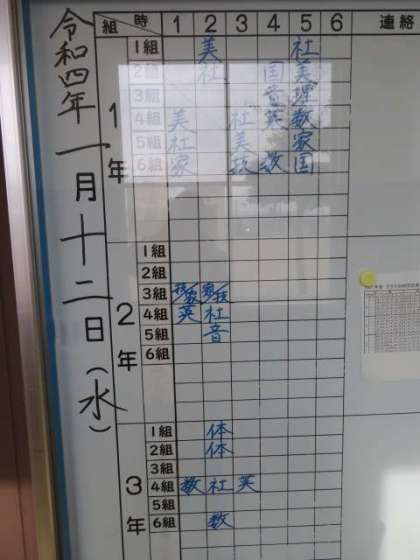 令和四年一月十二日(水)
組 時 1 2 3 4 5 6 連絡
1年
1組 美 社
2組 社 国 美
3組 音 理
4組 美 社 英 数
5組 社 美 家
6組 家 技 数 国
2年
1組
2組
3組 技/家 家/技
4組 英 社
5組 音
6組
3年
1組 体
2組 体
3組
4組 数 社 英
5組
6組 数